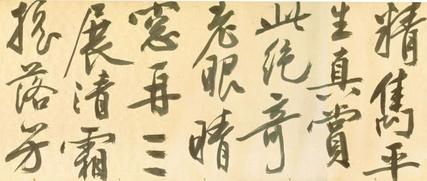 精雋平
生真賞
此絕奇
老眼晴
窓再三
展清霜
搖落